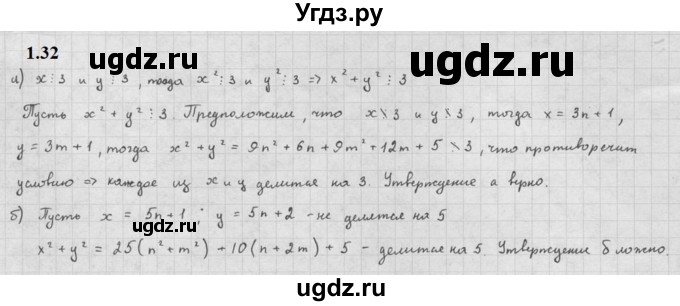 Угдз.ру
1.32
а) x⋮3 и y⋮3, тогда x²⋮3 и y²⋮3 => x² + y²⋮3
Пусть x² + y²⋮3. Предположим, что x⋮̸3 и y⋮̸3, тогда x = 3n + 1,
y = 3m + 1, тогда x² + y² = 9n² + 6n + 9m² + 12m + 5 ⋮̸3, что противоречит
условию => каждое из x и y делится на 3. Утверждение а верно.
б) Пусть x = 5n + 1, y = 5n + 2 - не делятся на 5
x² + y² = 25(n² + m²) + 10(n + 2m) + 5 - делится на 5. Утверждение б ложно.
ugdz.ru
ugdz.ru
ugdz.ru
ugdz.ru
ugdz.ru
ugdz.ru
ugdz.ru
Угдз.ру